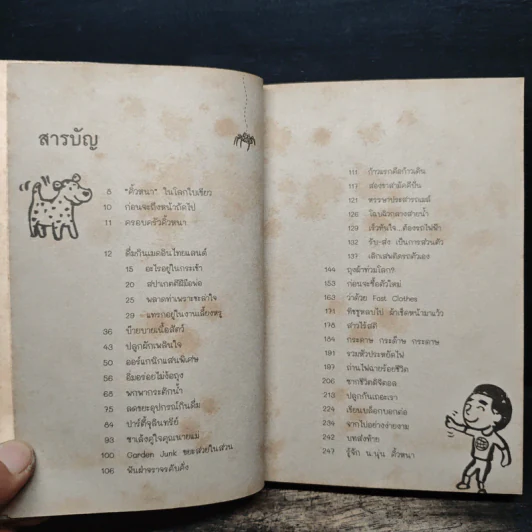 สารบัญ
8 "คิ้วหนา" ในโลกใบเขียว
10 ก่อนจะถึงหน้าถัดไป
11 ครอบครัวคิ้วหนา
12 ดื่มกินเมดอินไทยแลนด์
15 อะไรอยู่ในกระเช้า
20 สปาเกตตีฝีมือพ่อ
25 พลาดท่าเพราะชะล่าใจ
29 แทรกอยู่ในงานเลี้ยงหรู
36 บ๊ายบายเนื้อสัตว์
43 ปลูกผักเพลินใจ
50 ออร์แกนิกแสนพิเศษ
56 อิ่มอร่อยไม่ง้อถุง
68 พกพากระติกน้ำ
75 ลดขยะอุปกรณ์ในดื่ม
84 ปาร์ตี้จุลินทรีย์
93 ซาเล้งคู่ใจคุณนายแม่
100 Garden Junk ขยะสวยในสวน
106 ฟันฝ่าจราจรคับคั่ง
111 ก้าวแรกคือก้าวเดิน
117 สองขาสามัคคีปั่น
121
126
129 เร็วทันใจ...ต้องรถไฟฟ้า
132 รับ-ส่ง เป็นการส่วนตัว
137 เลิกเสพติดรถตัวเอง
144 ถุงผ้าท่วมโลก?
153 ก่อนจะซื้อตัวใหม่
163 ว่าด้วย Fast Clothes
171 ทิชชูหลบไป ผ้าเช็ดหน้ามาแว้ว
178
184 กระดาษ กระด๊าษ กระดาษ
191 รวมหัวประหยัดไฟ
197 ถ่านไฟฉายร้อยชีวิต
206 ซากชีวิตดิจิตอล
213 ปลูกกันเถอะเรา
224 เรียนบล็อกบอกต่อ
234 จากไปอย่างง่ายงาม
242 บทส่งท้าย
247 รู้จัก น.นุ่น คิ้วหนา